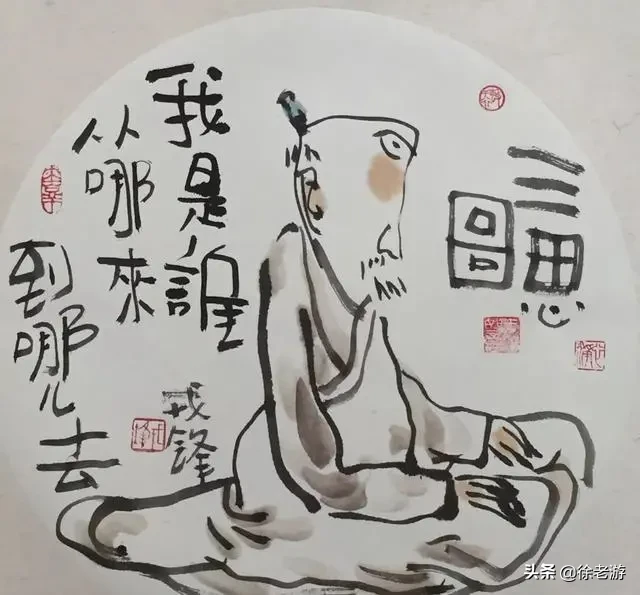 三思
圖
我是誰
从哪來
到哪儿去
戎鋒
头条 @徐老游